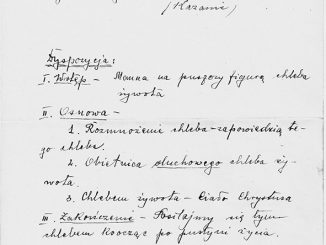 (Kazanie)
Dyspozycja:
I. Wstęp - Manna na puszczy figurą chleba
żywota
II. Osnowa -
1. Rozmnożenie chleba - zapowiedzią te-
go chleba.
2. Obietnica duchowego chleba ży-
wota.
3. Chlebem żywota - Ciało Chrystusa
III. Zakończenie - Posilajmy się tym
chlebem krocząc po pustyni życia.